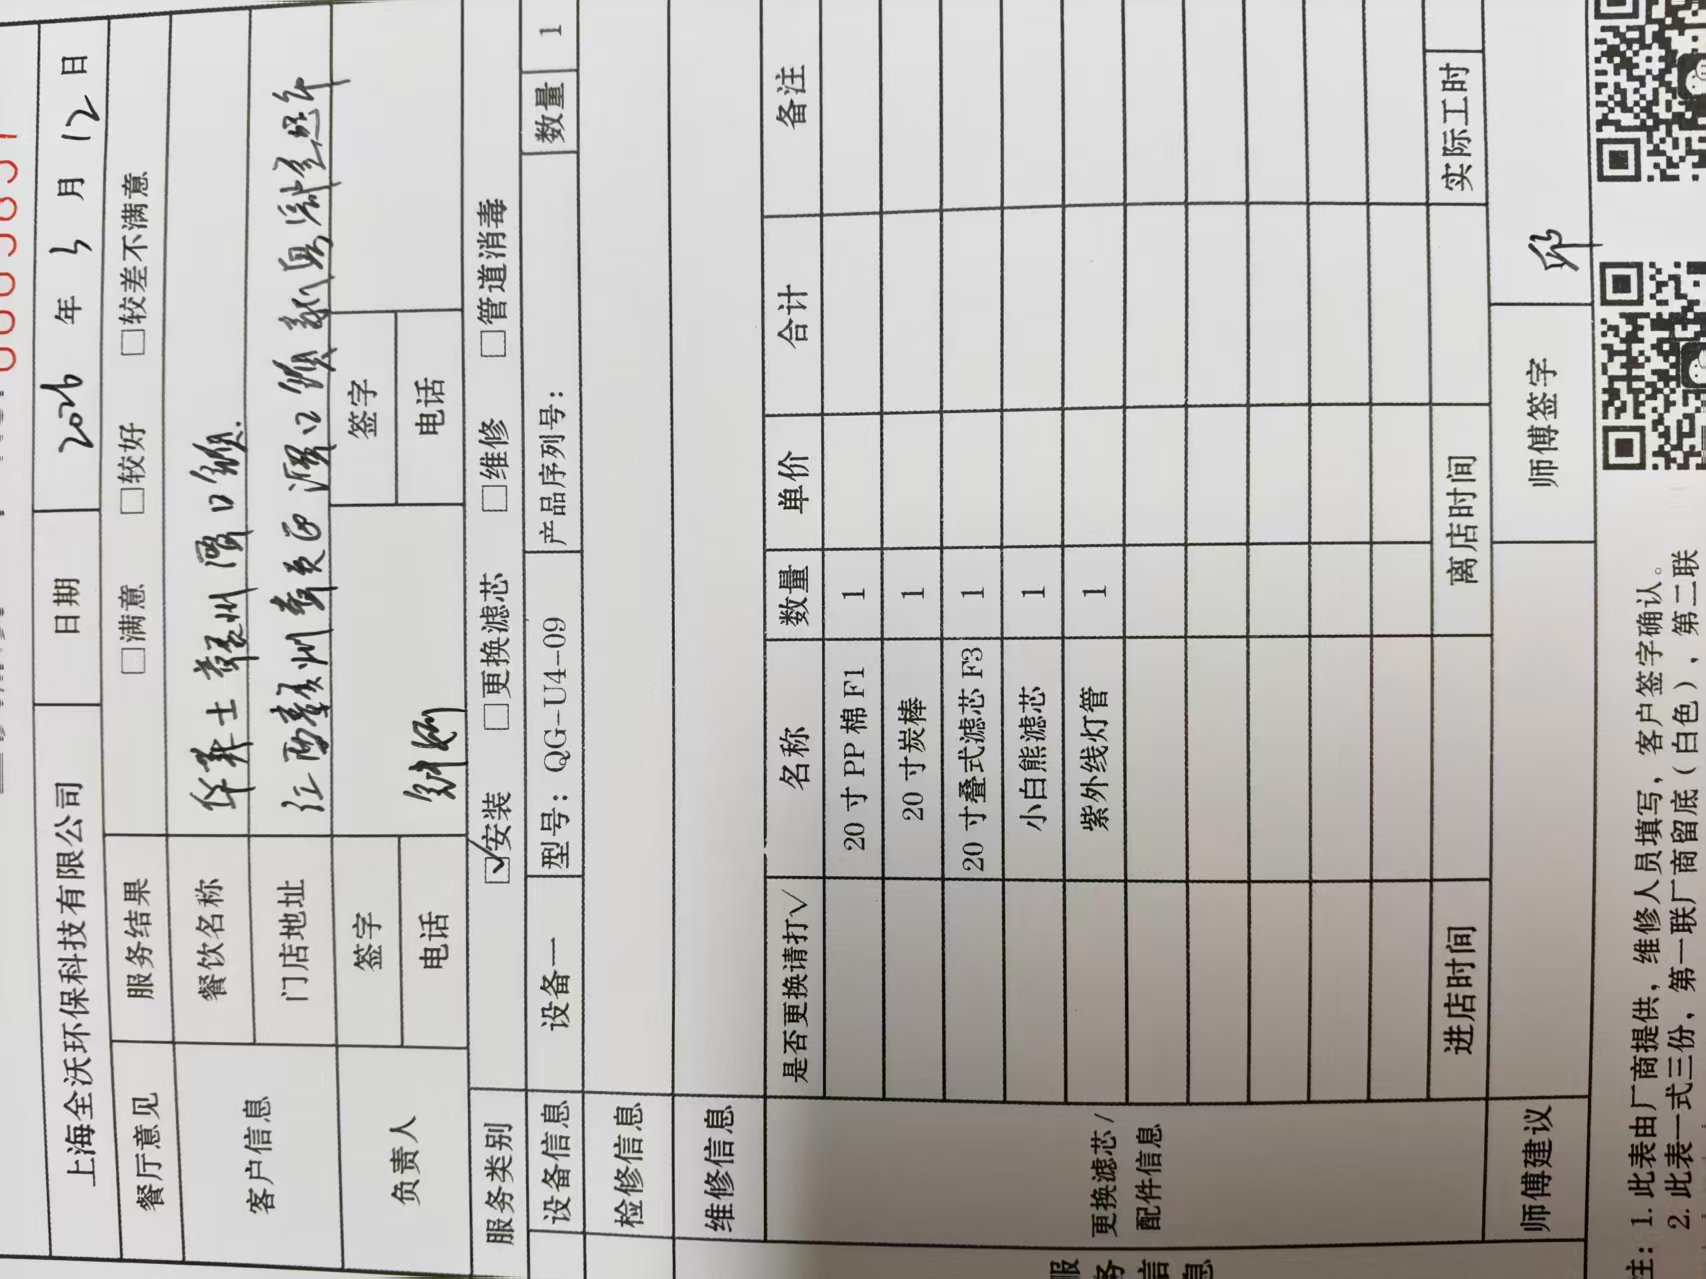 上海全沃环保科技有限公司 日期 2026 年 3 月 12 日
餐厅意见 服务结果 □满意 □较好 □较差不满意
客户信息 餐饮名称 华莱士赣州潭口镇.
门店地址 江西赣州 潭口镇
负责人 签字 签字
电话 电话
服务类别 ☑安装 □更换滤芯 □维修 □管道消毒
设备信息 设备一 型号：QG-U4-09 产品序列号： 数量 1
检修信息
维修信息
更换滤芯/
配件信息
是否更换请打√ 名称 数量 单价 合计 备注
20 寸 PP 棉 F1 1
20 寸炭棒 1
20 寸叠式滤芯 F3 1
小白熊滤芯 1
紫外线灯管 1
进店时间 离店时间 实际工时
师傅建议 师傅签字
注：1. 此表由厂商提供，维修人员填写，客户签字确认。
2. 此表一式三份，第一联厂商留底（白色），第二联